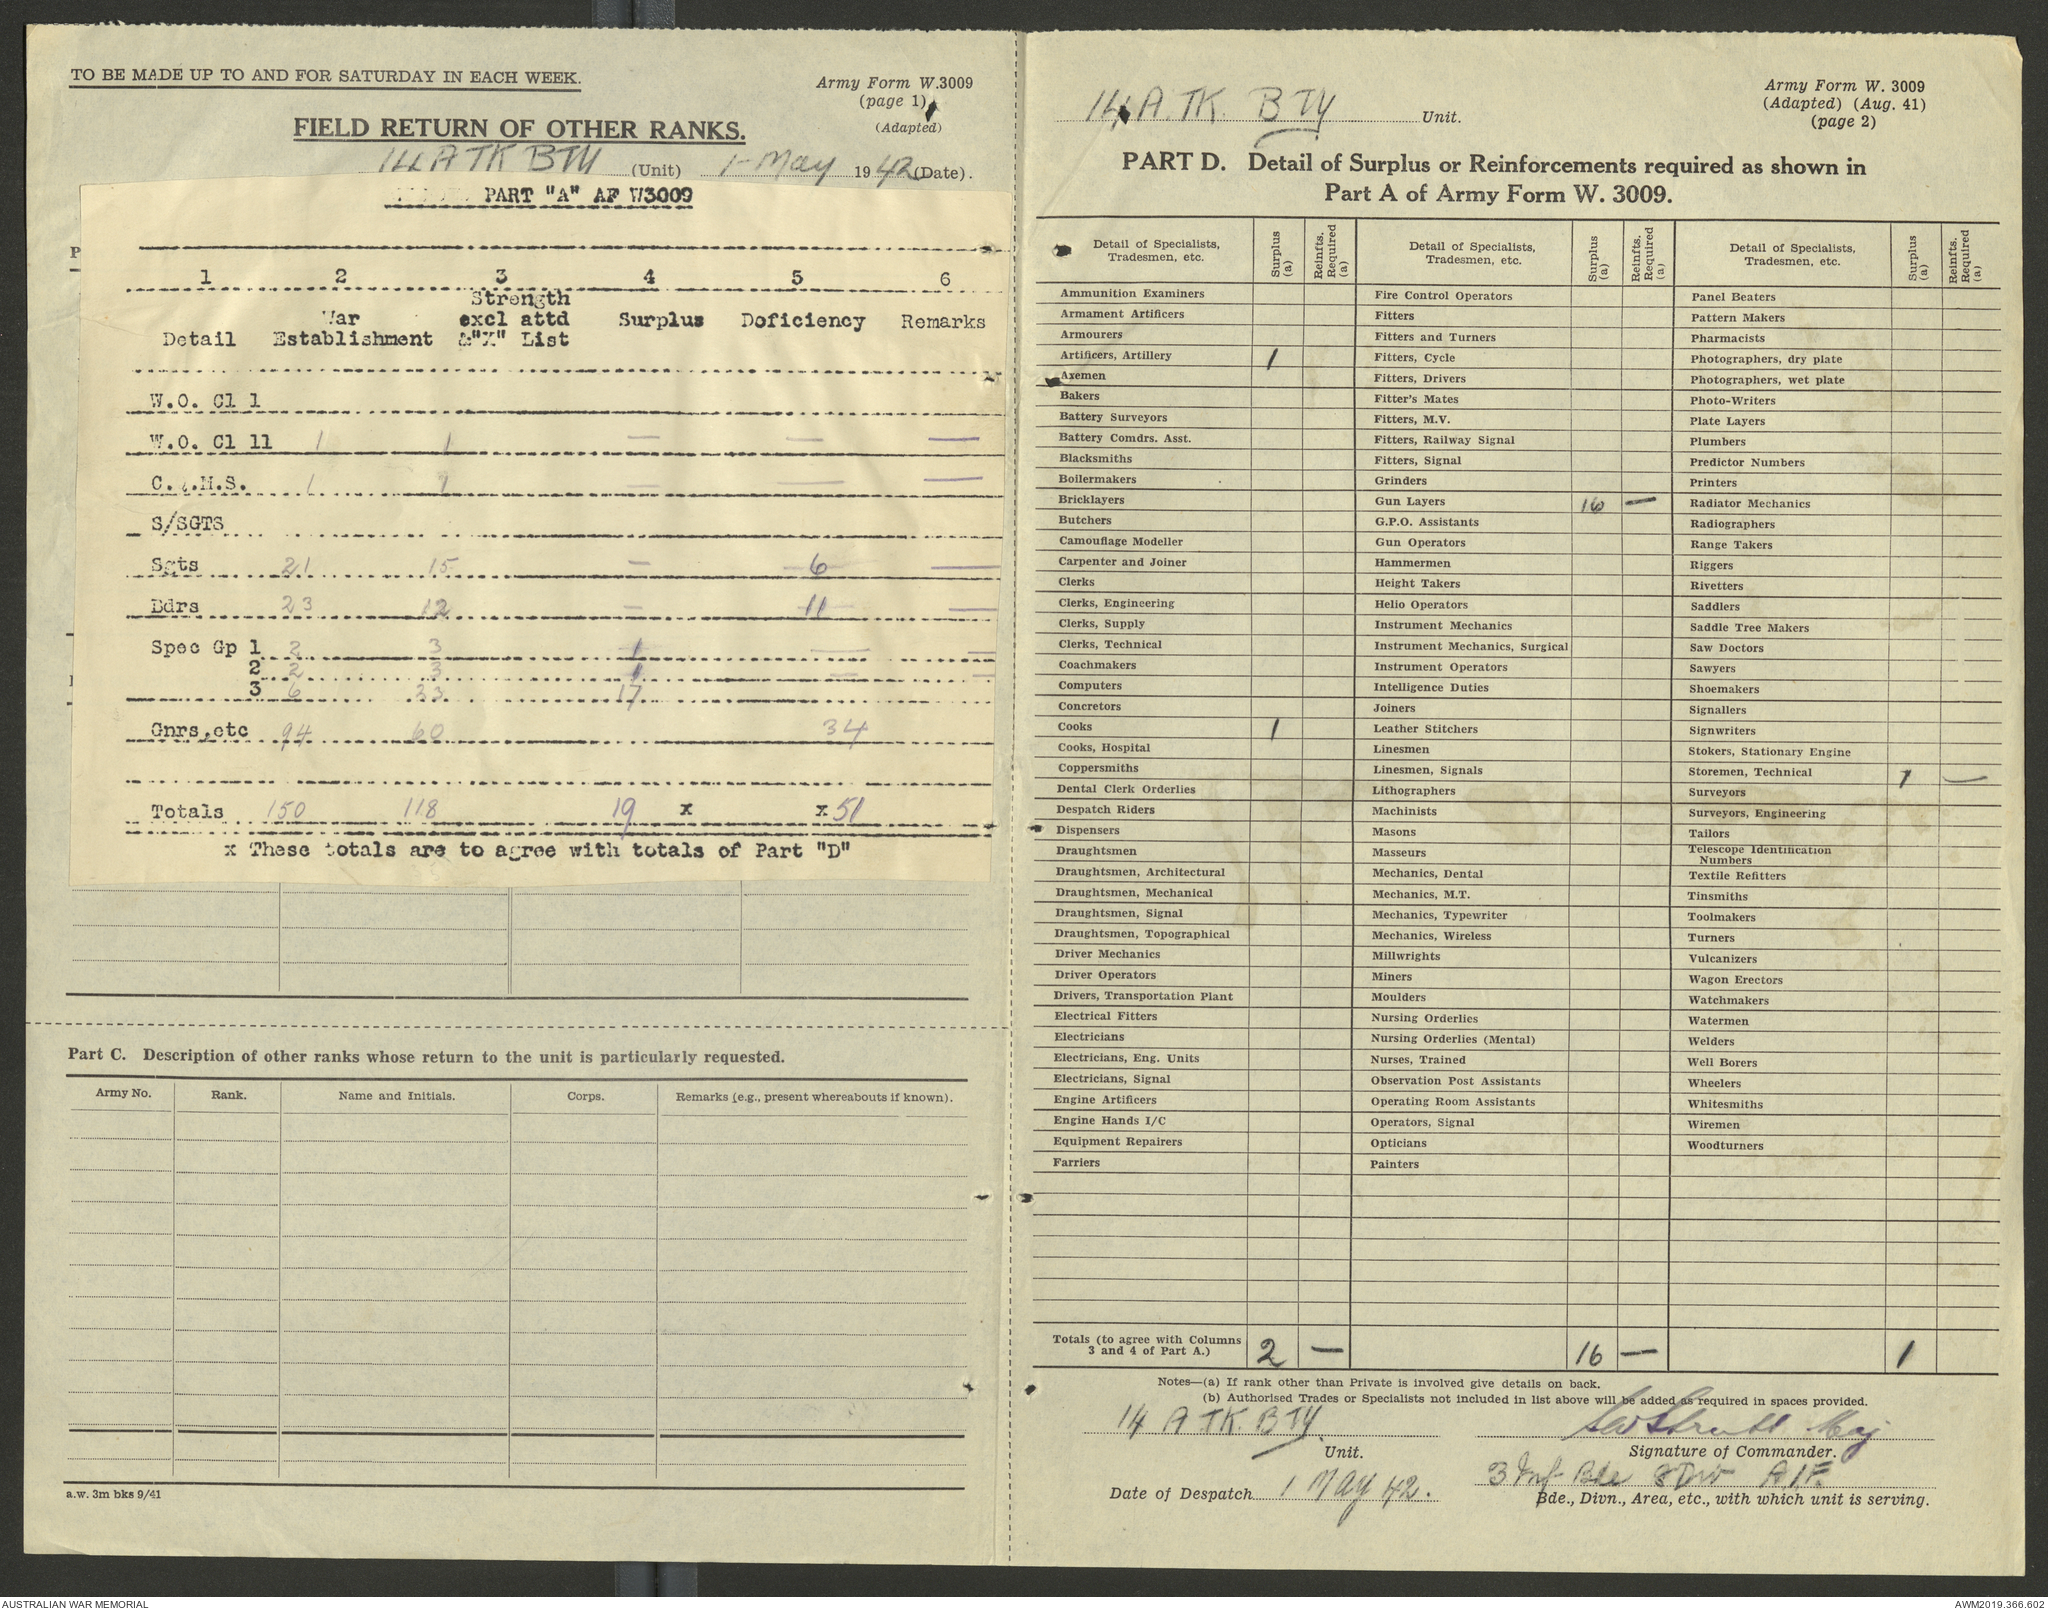 TO BE MADE UP TO AND FOR SATURDAY IN EACH WEEK.
Army Form W.3009
(page 1)
(Adapted)
FIELD RETURN OF OTHER RANKS.
14 A TK BTY (Unit) 1 - May 1942 (Date).
PART "A" AF W3009
1 2 3 4 5 6
Detail War Establishment Strength excl attd &"X" List Surplus Doficiency Remarks
W.O. Cl 1
W.O. Cl 11 1 1 — — —
C.Q.M.S. 1 1 — — —
S/SGTS
Sgts 21 15 — 6 —
Bdrs 23 12 — 11 —
Spec Gp 1 2 3 1 — —
2 2 3 1 — —
3 6 23 17
Gnrs,etc 94 60 34
Totals 150 118 19 x x 51
x These totals are to agree with totals of Part "D"
Part C. Description of other ranks whose return to the unit is particularly requested.
Army No. Rank. Name and Initials. Corps. Remarks (e.g., present whereabouts if known).
a.w. 3m bks 9/41
14 A.TK. BTY Unit.
Army Form W. 3009
(Adapted) (Aug. 41)
(page 2)
PART D. Detail of Surplus or Reinforcements required as shown in
Part A of Army Form W. 3009.
Detail of Specialists, Tradesmen, etc. Surplus (a) Reinfts. Required (a)
Ammunition Examiners
Armament Artificers
Armourers
Artificers, Artillery 1
Axemen
Bakers
Battery Surveyors
Battery Comdrs. Asst.
Blacksmiths
Boilermakers
Bricklayers
Butchers
Camouflage Modeller
Carpenter and Joiner
Clerks
Clerks, Engineering
Clerks, Supply
Clerks, Technical
Coachmakers
Computers
Concretors
Cooks 1
Cooks, Hospital
Coppersmiths
Dental Clerk Orderlies
Despatch Riders
Dispensers
Draughtsmen
Draughtsmen, Architectural
Draughtsmen, Mechanical
Draughtsmen, Signal
Draughtsmen, Topographical
Driver Mechanics
Driver Operators
Drivers, Transportation Plant
Electrical Fitters
Electricians
Electricians, Eng. Units
Electricians, Signal
Engine Artificers
Engine Hands I/C
Equipment Repairers
Farriers
Detail of Specialists, Tradesmen, etc. Surplus (a) Reinfts. Required (a)
Fire Control Operators
Fitters
Fitters and Turners
Fitters, Cycle
Fitters, Drivers
Fitter's Mates
Fitters, M.V.
Fitters, Railway Signal
Fitters, Signal
Grinders
Gun Layers 16 —
G.P.O. Assistants
Gun Operators
Hammermen
Height Takers
Helio Operators
Instrument Mechanics
Instrument Mechanics, Surgical
Instrument Operators
Intelligence Duties
Joiners
Leather Stitchers
Linesmen
Linesmen, Signals
Lithographers
Machinists
Masons
Masseurs
Mechanics, Dental
Mechanics, M.T.
Mechanics, Typewriter
Mechanics, Wireless
Millwrights
Miners
Moulders
Nursing Orderlies
Nursing Orderlies (Mental)
Nurses, Trained
Observation Post Assistants
Operating Room Assistants
Operators, Signal
Opticians
Painters
Detail of Specialists, Tradesmen, etc. Surplus (a) Reinfts. Required (a)
Panel Beaters
Pattern Makers
Pharmacists
Photographers, dry plate
Photographers, wet plate
Photo-Writers
Plate Layers
Plumbers
Predictor Numbers
Printers
Radiator Mechanics
Radiographers
Range Takers
Riggers
Rivetters
Saddlers
Saddle Tree Makers
Saw Doctors
Sawyers
Shoemakers
Signallers
Signwriters
Stokers, Stationary Engine
Storemen, Technical 1 —
Surveyors
Surveyors, Engineering
Tailors
Telescope Identification Numbers
Textile Refitters
Tinsmiths
Toolmakers
Turners
Vulcanizers
Wagon Erectors
Watchmakers
Watermen
Welders
Well Borers
Wheelers
Whitesmiths
Wiremen
Woodturners
Totals (to agree with Columns 3 and 4 of Part A.) 2 — 16 — 1
Notes—(a) If rank other than Private is involved give details on back.
(b) Authorised Trades or Specialists not included in list above will be added as required in spaces provided.
14 A TK. BTY. Unit.
Maj
Signature of Commander.
Date of Despatch 1 MAY 42.
3 Inf Bde 8 Div AIF.
Bde., Divn., Area, etc., with which unit is serving.
AUSTRALIAN WAR MEMORIAL
AWM2019.366.602